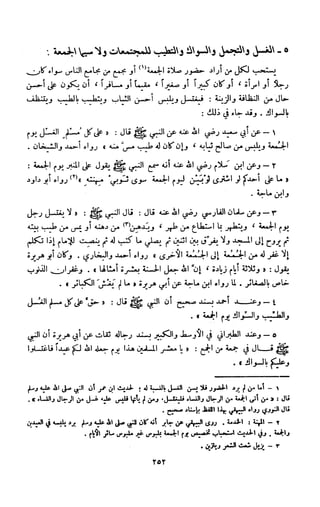 ٥ - الغسل والتجمل والسواك والتطيب للمجتمعات ولا سيما الجمعة :
يستحب لكل من أراد حضور صلاة الجمعة (١) أو مجمع من مجامع الناس سواء كان
رجلا أو امرأة ، أو كان كبيراً أو صغيراً ، مقيماً أو مسافراً ، أن يكون على أحسن
حال من النظافة والزينة : فيغتسل ويلبس أحسن الثياب ويتطيب بالطيب ويتنظف
بالسواك . وقد جاء في ذلك :
١ - عن أبي سعيد رضي الله عنه عن النبي ﷺ قال : « على كل مسلم الغسل يوم
الجمعة ويلبس من صالح ثيابه ، وإن كان له طيب مس منه » رواه أحمد والشيخان .
٢ - وعن ابن سلام رضي الله عنه أنه سمع النبي ﷺ يقول على المنبر يوم الجمعة :
« ما على أحدكم لو اشترى ثوبين ليوم الجمعة سوى ثوبي مهنته (٢) » رواه أبو داود
وابن ماجه .
٣ - وعن سلمان الفارسي رضي الله عنه قال : قال النبي ﷺ : « لا يغتسل رجل
يوم الجمعة ، ويتطهر بما استطاع من طهر ، ويدهن (٣) من دهنه أو يمس من طيب بيته
ثم يروح إلى المسجد ولا يفرق بين اثنين ثم يصلي ما كتب له ثم ينصت للإمام إذا تكلم
إلا غفر له من الجمعة إلى الجمعة الأخرى » رواه أحمد والبخاري . وكان أبو هريرة
يقول : « وثلاثة أيام زيادة ، إن الله جعل الحسنة بعشرة أمثالها » . وغفران الذنوب
خاص بالصغائر . لما رواه ابن ماجه عن أبي هريرة « ما لم يغش الكبائر » .
٤ - وعند أحمد بسند صحيح أن النبي ﷺ قال : « حق على كل مسلم الغسل
والطيب والسواك يوم الجمعة » .
٥ - وعند الطبراني في الأوسط والكبير بسند رجاله ثقات عن أبي هريرة أن النبي
ﷺ قال في جمعة من الجمع : « يا معشر المسلمين هذا يوم جعله الله لكم عيداً فاغتسلوا
وعليكم بالسواك » .
١ - أما من لم يرد الحضور فلا يسن الغسل بالنسبة له : لحديث ابن عمر أن النبي صلى الله عليه وسلم
قال : « من أتى الجمعة من الرجال والنساء فليغتسل ، ومن لم يأتها فليس عليه غسل من الرجال والنساء » .
قال النووي رواه البيهقي بهذا اللفظ بإسناد صحيح .
٢ - المهنة : الخدمة . وروى البيهقي عن جابر أنه كان للنبي صلى الله عليه وسلم برد يلبسه في العيدين
والجمعة ، وفي الحديث استحباب تخصيص يوم الجمعة بملبوس غير ملبوس سائر الأيام .
٣ - يزيل شعث الشعر ويتزين .
٢٥٢